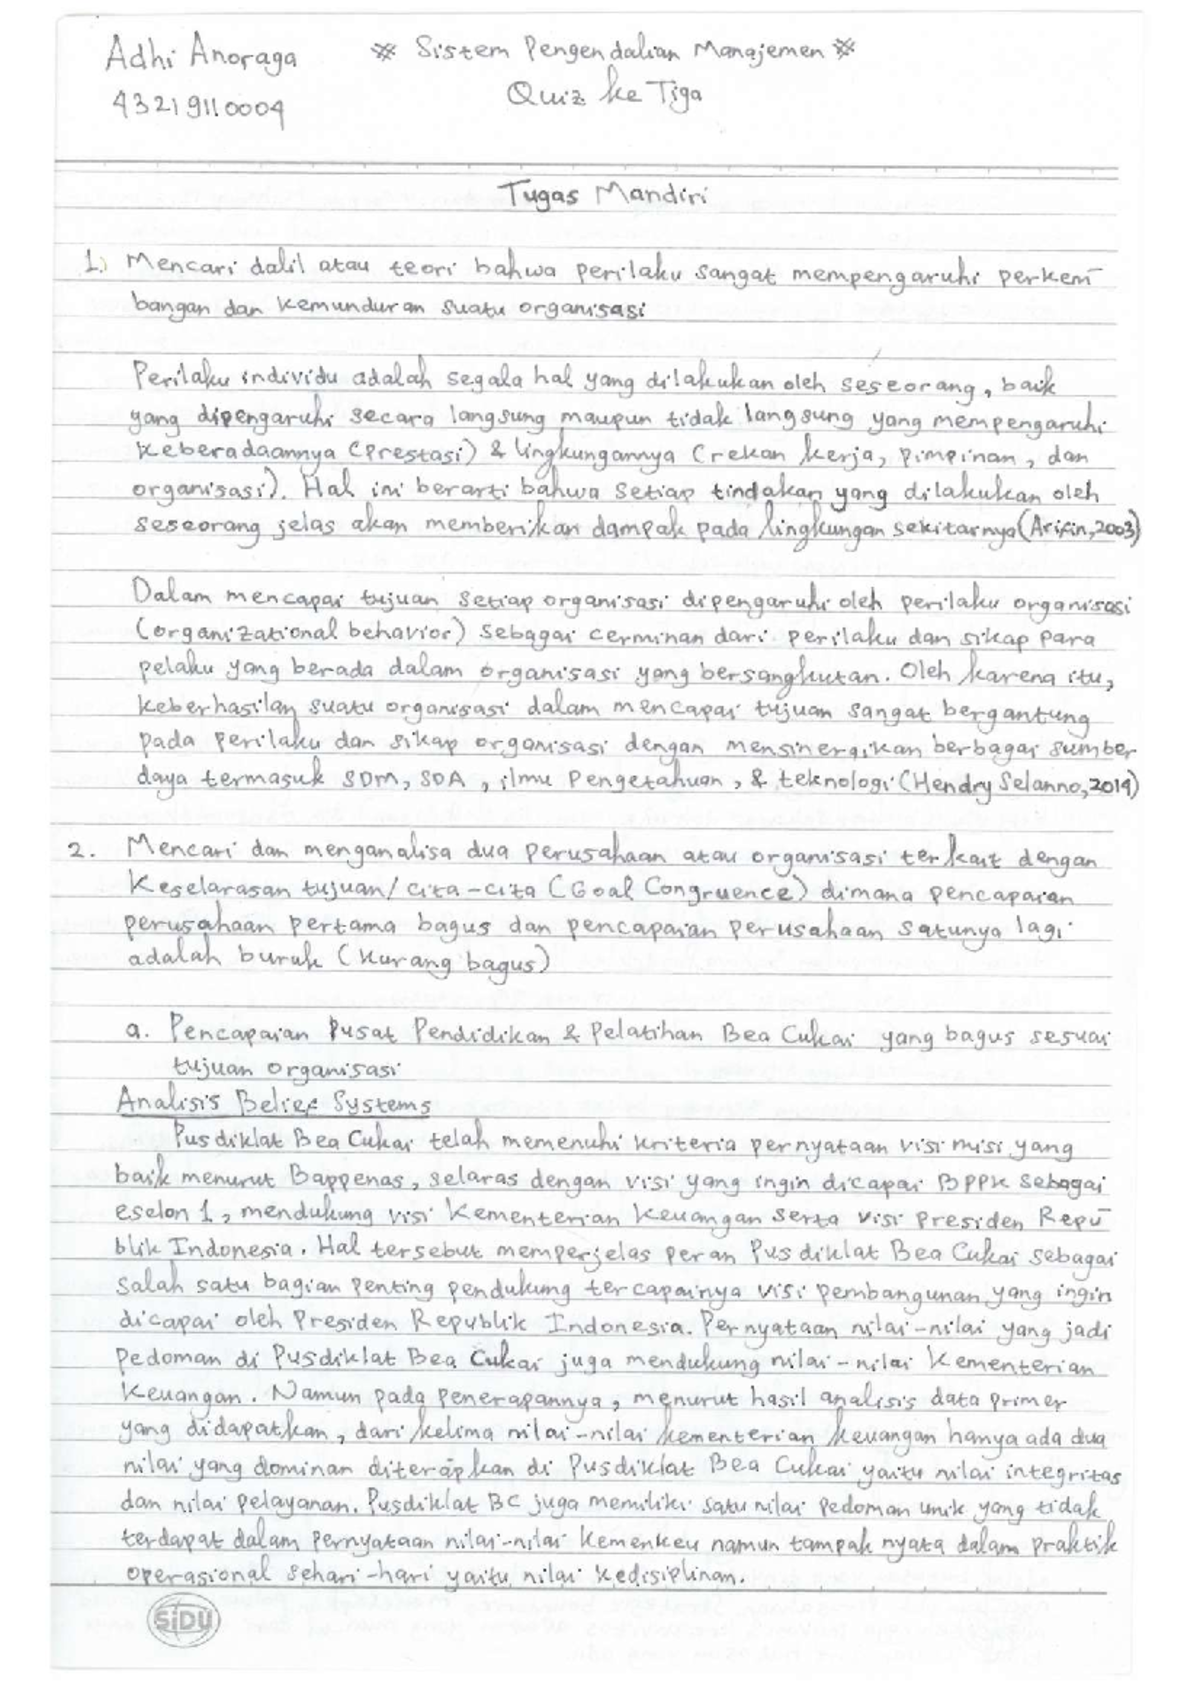 Adhi Anoraga
43219110004
* Sistem Pengendalian Manajemen *
Quiz ke Tiga
Tugas Mandiri
1. Mencari dalil atau teori bahwa perilaku sangat mempengaruhi perkem-
bangan dan kemunduran suatu organisasi
Perilaku individu adalah segala hal yang dilakukan oleh seseorang, baik
yang dipengaruhi secara langsung maupun tidak langsung yang mempengaruhi
keberadaannya (prestasi) & lingkungannya (rekan kerja, pimpinan, dan
organisasi). Hal ini berarti bahwa setiap tindakan yang dilakukan oleh
seseorang jelas akan memberikan dampak pada lingkungan sekitarnya (Arifin, 2003)
Dalam mencapai tujuan setiap organisasi dipengaruhi oleh perilaku organisasi
(organizational behavior) sebagai cerminan dari perilaku dan sikap para
pelaku yang berada dalam organisasi yang bersangkutan. Oleh karena itu,
keberhasilan suatu organisasi dalam mencapai tujuan sangat bergantung
pada perilaku dan sikap organisasi dengan mensinergikan berbagai sumber
daya termasuk SDM, SDA, ilmu pengetahuan, & teknologi (Hendry Selanno, 2014)
2. Mencari dan menganalisa dua perusahaan atau organisasi terkait dengan
Keselarasan tujuan/ cita-cita (Goal Congruence) dimana pencapaian
perusahaan pertama bagus dan pencapaian perusahaan satunya lagi
adalah buruk (kurang bagus)
a. Pencapaian Pusat Pendidikan & Pelatihan Bea Cukai yang bagus sesuai
tujuan organisasi
Analisis Belief Systems
Pusdiklat Bea Cukai telah memenuhi kriteria pernyataan visi misi yang
baik menurut Bappenas, selaras dengan visi yang ingin dicapai BPPK sebagai
eselon 1, mendukung visi Kementerian Keuangan serta visi Presiden Repu-
blik Indonesia. Hal tersebut memperjelas peran Pusdiklat Bea Cukai sebagai
salah satu bagian penting pendukung tercapainya visi pembangunan yang ingin
dicapai oleh Presiden Republik Indonesia. Pernyataan nilai-nilai yang jadi
pedoman di Pusdiklat Bea Cukai juga mendukung nilai-nilai Kementerian
Keuangan. Namun pada penerapannya, menurut hasil analisis data primer
yang didapatkan, dari kelima nilai-nilai kementerian keuangan hanya ada dua
nilai yang dominan diterapkan di Pusdiklat Bea Cukai yaitu nilai integritas
dan nilai pelayanan. Pusdiklat BC juga memiliki satu nilai pedoman unik yang tidak
terdapat dalam pernyataan nilai-nilai Kemenkeu namun tampak nyata dalam praktik
operasional sehari-hari yaitu nilai kedisiplinan.
SiDU